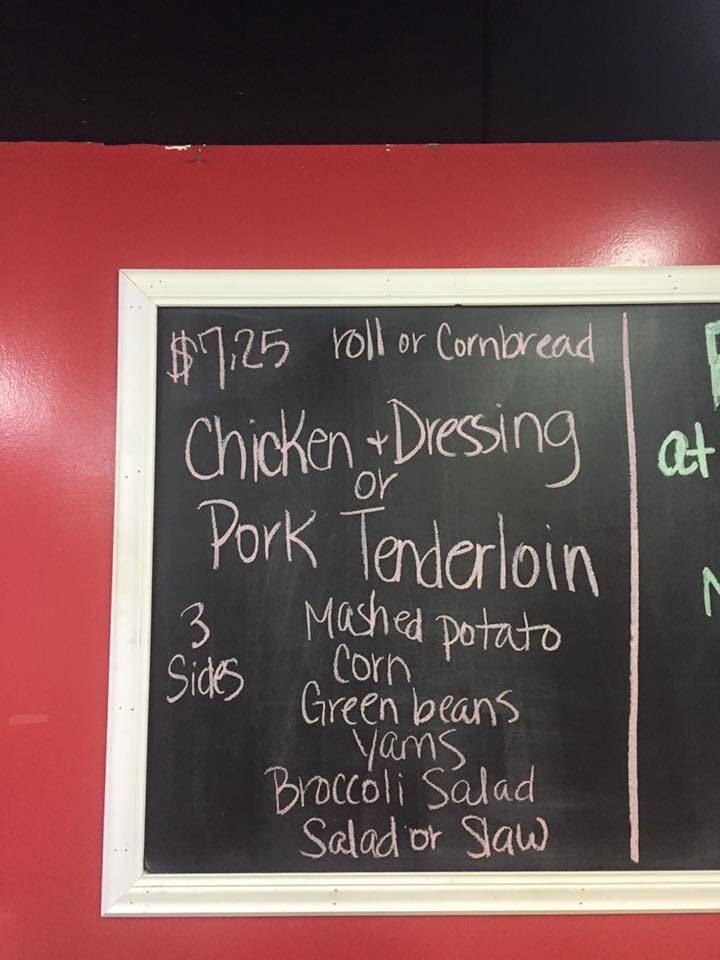 $7.25 roll or Cornbread
Chicken + Dressing
or
Pork Tenderloin
3 Sides
Mashed potato
Corn
Green beans
Yams
Broccoli Salad
Salad or Slaw
at